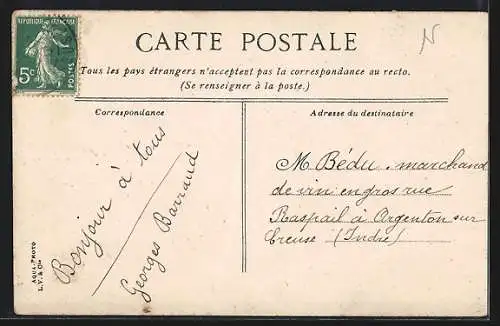 RÉPUBLIQUE FRANÇAISE
5c
POSTES
CARTE POSTALE
N
Tous les pays étrangers n'acceptent pas la correspondance au recto.
(Se renseigner à la poste.)
Correspondance
Adresse du destinataire
Bonjour à tous
Georges Barraud
M Bédu. marchand
de vin en gros rue
Raspail à Argenton sur
Creuse (Indre)
AQUA-PHOTO
L.V. & Cie